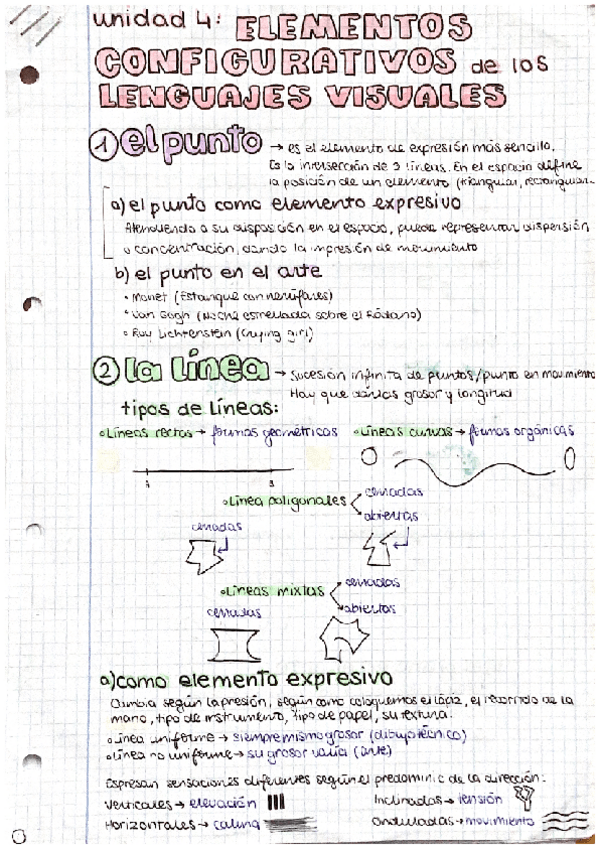 unidad 4: ELEMENTOS
CONFIGURATIVOS de los
LENGUAJES VISUALES
1 el punto → es el elemento de expresión más sencillo.
Es la intersección de 2 líneas. En el espacio define
la posición de un elemento (triangular, rectangular...
a) el punto como elemento expresivo
Atendiendo a su disposición en el espacio, puede representar dispersión
o concentración, dando la impresión de movimiento
b) el punto en el arte
• Monet (Estanque con nenúfares)
• Van Gogh (Noche estrellada sobre el Ródano)
• Roy Lichtenstein (Crying girl)
2 la línea → Sucesión infinita de puntos/punto en movimiento
Hay que grosor y longitud
tipos de líneas:
• Líneas rectas → formas geométricas • Líneas curvas → formas orgánicas
• Línea poligonales cerradas
abiertas
cerradas
• Líneas mixtas cerradas
abiertas
cerradas
a) como elemento expresivo
Cambia según la presión, según como coloquemos el lápiz, el recorrido de la
mano, tipo de instrumento, tipo de papel, su textura.
• Línea uniforme → siempre mismo grosor (dibujo técnico)
• Línea no uniforme → su grosor varía (arte)
Expresan sensaciones diferentes según el predominio de la dirección:
Verticales → elevación Inclinadas → tensión
Horizontales → calma Onduladas → movimiento